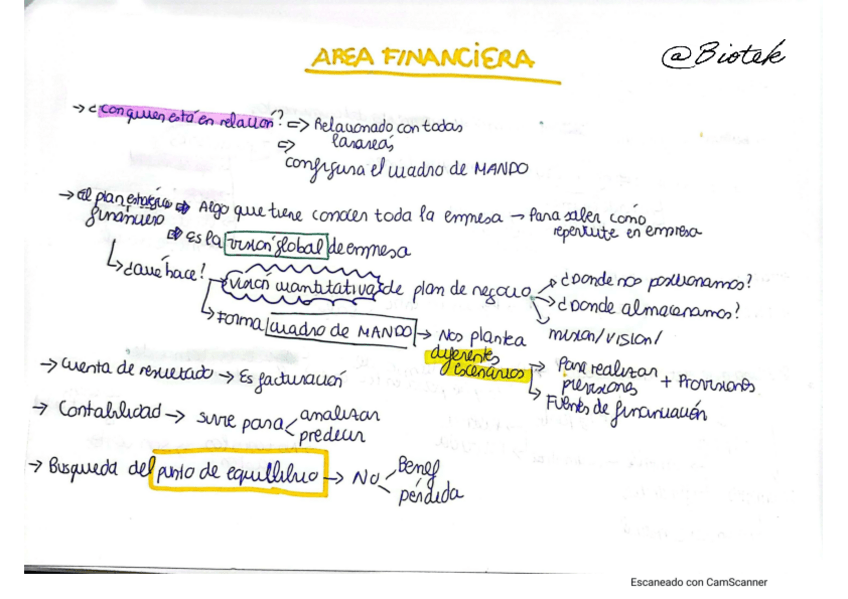 AREA FINANCIERA
@Biotek
→ ¿con quien está en relación? ⇒ Relacionado con todas
las areas
⇒
configura el cuadro de MANDO
→ El plan estratégico ⇒ Algo que tiene conocer toda la empresa → Para saber como
financiero
repercute en empresa
⇒ es la visión global de empresa
↳ ¿Qué hace? visión cuantitativa de plan de negocio → ¿Donde nos posicionamos?
→ ¿Donde almacenamos?
mision/vision/
↳ Forma cuadro de MANDO → Nos plantea
diferentes
escenarios → Para realizar
previsiones + Provisiones
↳ Fuentes de financiación
→ Cuenta de resultado → Es facturación
→ Contabilidad → sirve para analizar
predecir
→ Busqueda del punto de equilibrio → No Benef
pérdida
Escaneado con CamScanner